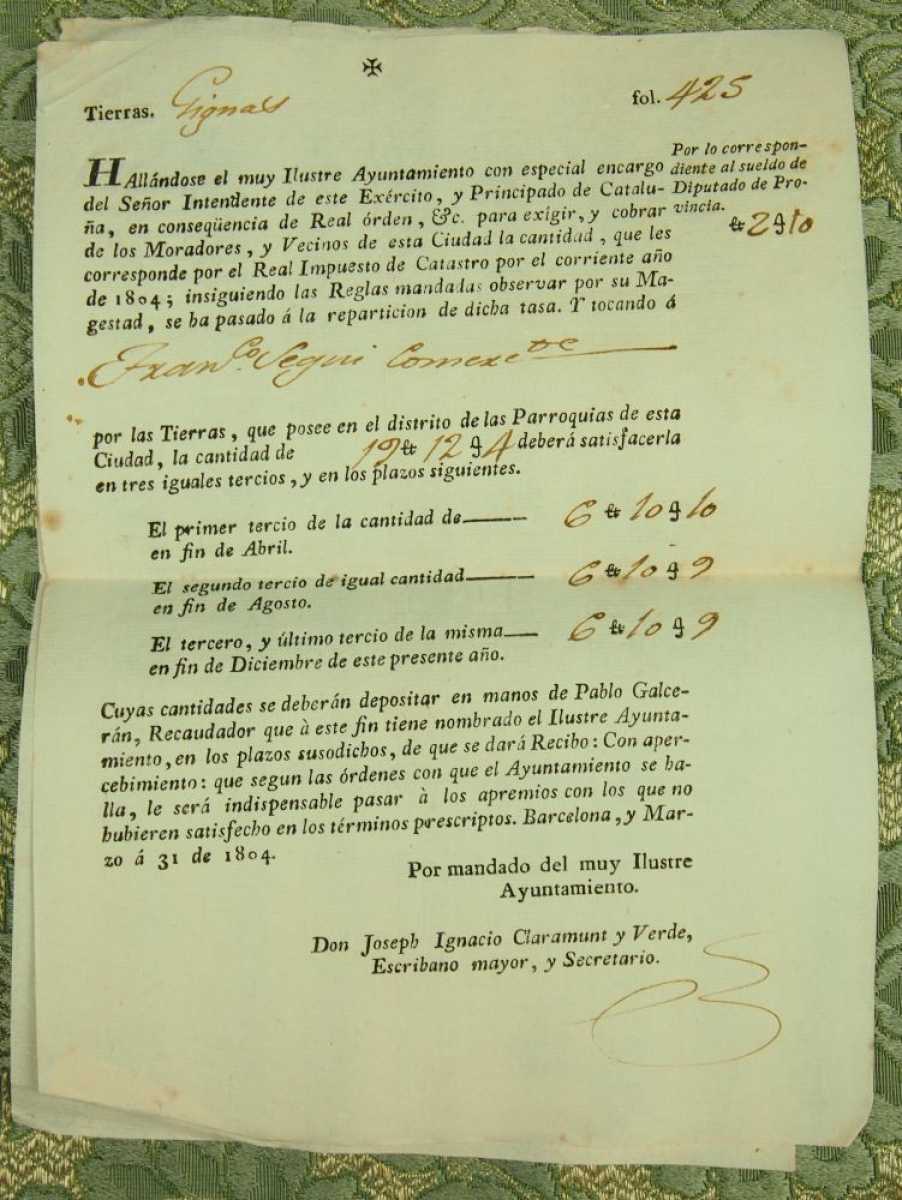 ✠
Tierras. Gignas fol. 425
HAllándose el muy Ilustre Ayuntamiento con especial encargo
del Señor Intendente de este Exército, y Principado de Catalu-
ña, en conseqüencia de Real órden, &c. para exîgir, y cobrar
de los Moradores, y Vecinos de esta Ciudad la cantidad, que les
corresponde por el Real Impuesto de Catastro por el corriente año
de 1804; insiguiendo las Reglas mandadas observar por su Ma-
gestad, se ha pasado á la reparticion de dicha tasa. Y tocando á
Por lo correspon-
diente al sueldo de
Diputado de Pro-
vincia.
℔ 2 ฿ 10
Fran.co Segui Comerc.te
por las Tierras, que posee en el distrito de las Parroquias de esta
Ciudad, la cantidad de 19 ℔ 12 ฿ 4 deberá satisfacerla
en tres iguales tercios, y en los plazos siguientes.
El primer tercio de la cantidad de—— 6 ℔ 10 ฿ 10
en fin de Abril.
El segundo tercio de igual cantidad—— 6 ℔ 10 ฿ 9
en fin de Agosto.
El tercero, y último tercio de la misma— 6 ℔ 10 ฿ 9
en fin de Diciembre de este presente año.
Cuyas cantidades se deberán depositar en manos de Pablo Galce-
rán, Recaudador que à este fin tiene nombrado el Ilustre Ayunta-
miento, en los plazos susodichos, de que se dará Recibo: Con aper-
cebimiento: que segun las órdenes con que el Ayuntamiento se ha-
lla, le será indispensable pasar à los apremios con los que no
hubieren satisfecho en los términos prescriptos. Barcelona, y Mar-
zo á 31 de 1804.
Por mandado del muy Ilustre
Ayuntamiento.
Don Joseph Ignacio Claramunt y Verde,
Escribano mayor, y Secretario.